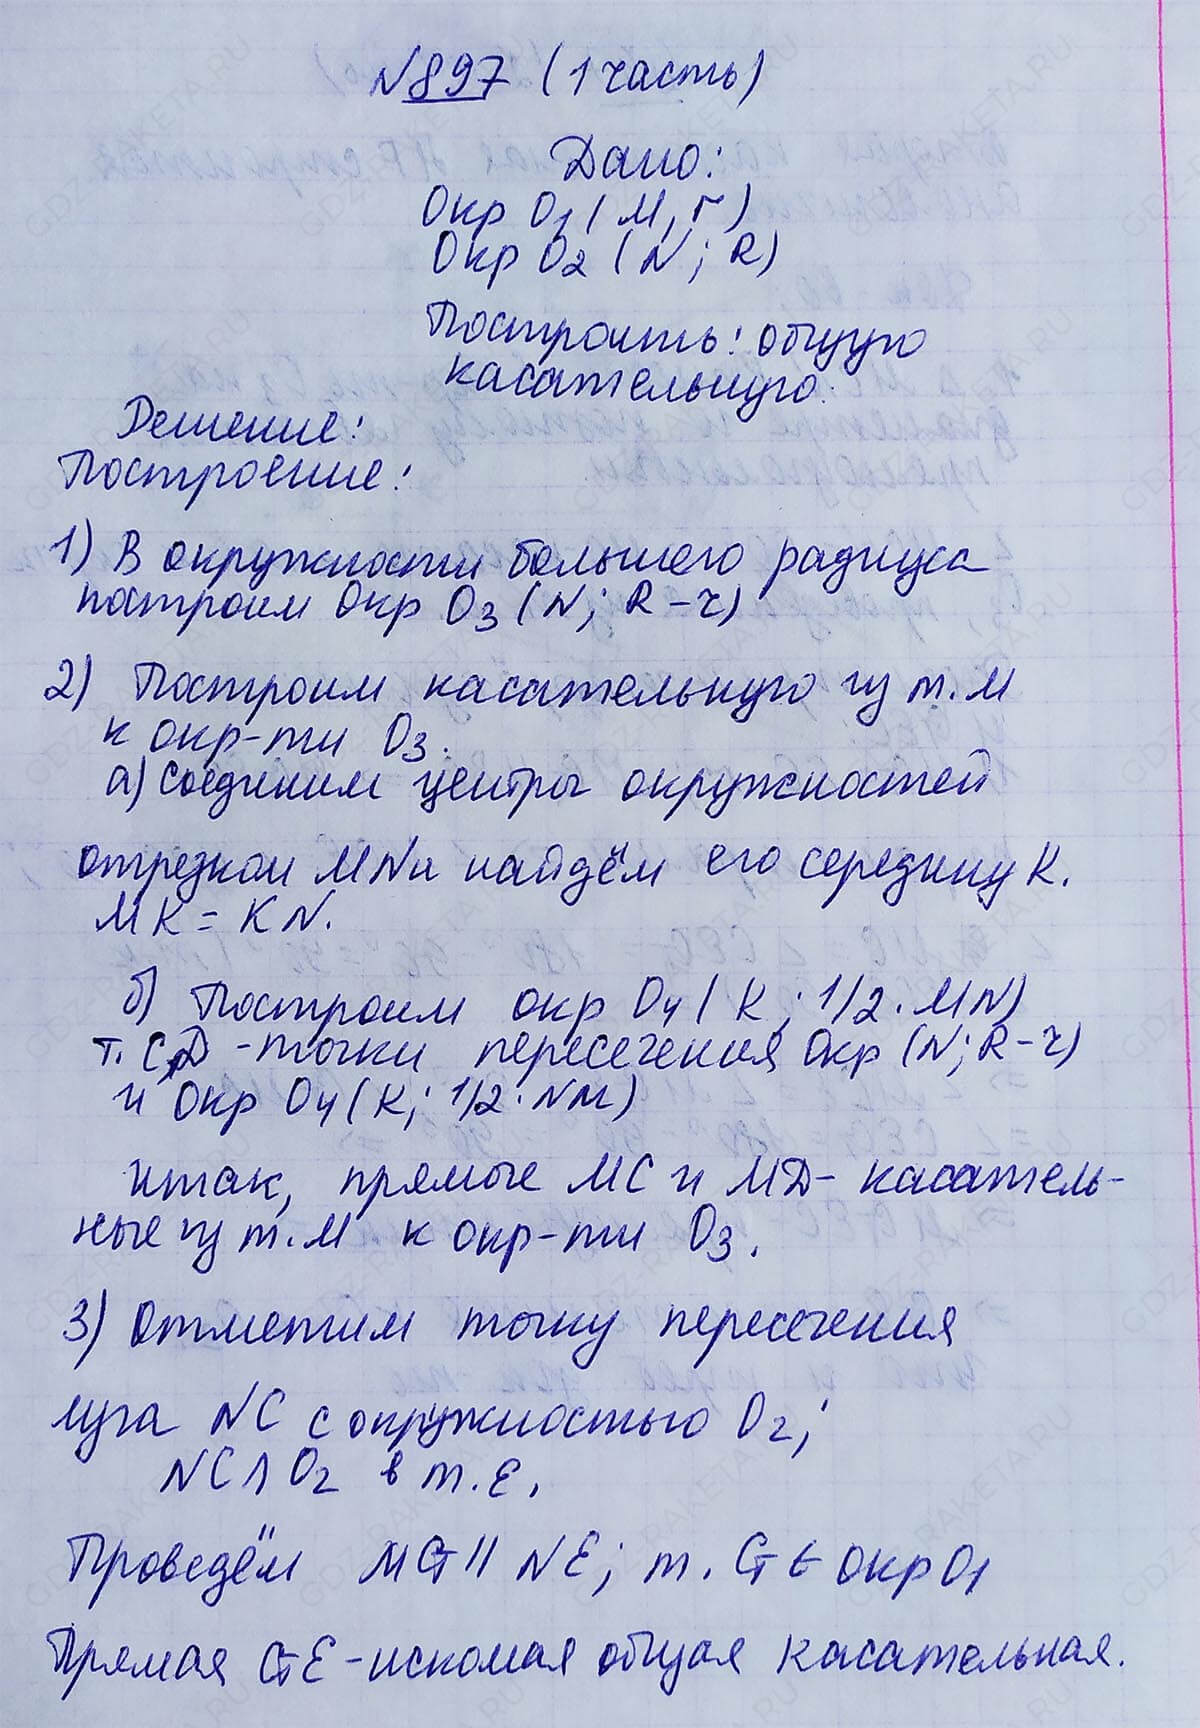 №897 (1 часть)
Дано:
Окр O₁ (M, r)
Окр O₂ (N; R)
Построить: общую
касательную.
Решение:
Построение:
1) В окружности большего радиуса
построим Окр O₃ (N; R-r)
2) Построим касательную из т. M
к окр-ти O₃.
а) Соединим центры окружностей
отрезком MN и найдём его середину K.
MK = KN.
б) Построим окр O₄ (K; 1/2 · MN)
т. C, D - точки пересечения Окр (N; R-r)
и Окр O₄ (K; 1/2 · NM)
Итак, прямые MC и MD - касатель-
ные из т. M к окр-ти O₃.
3) Отметим точку пересечения
луча NC с окружностью O₂;
NC ∩ O₂ в т. E.
Проведём MG || NE; т. G ∈ Окр O₁
Прямая GE - искомая общая касательная.
GDZ-RAKETA.RU